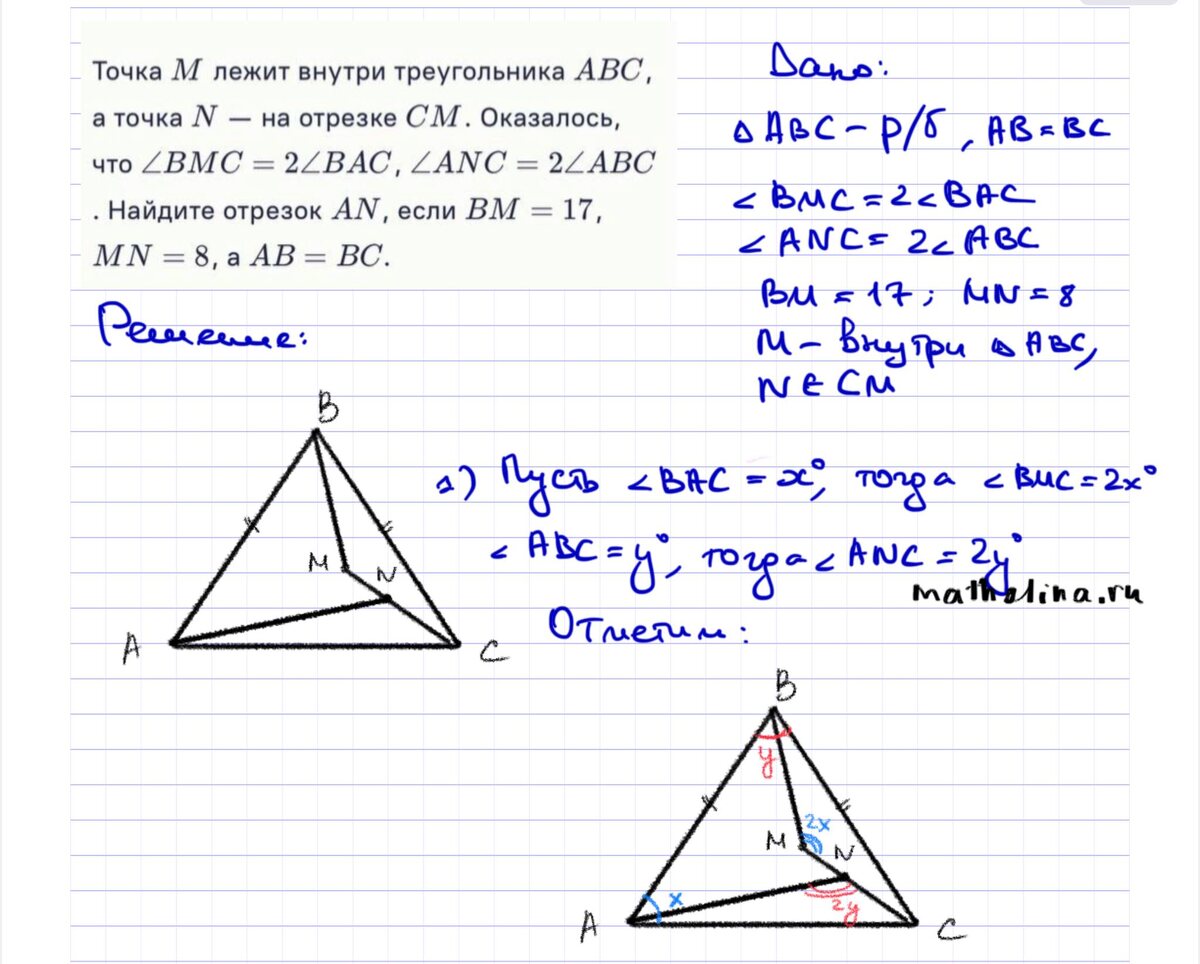 Точка M лежит внутри треугольника ABC,
а точка N — на отрезке CM. Оказалось,
что ∠BMC = 2∠BAC, ∠ANC = 2∠ABC
. Найдите отрезок AN, если BM = 17,
MN = 8, а AB = BC.
Дано:
△ABC – р/б, AB = BC
∠BMC = 2∠BAC
∠ANC = 2∠ABC
BM = 17; MN = 8
M – внутри △ABC,
N ∈ CM
Решение:
B
M
N
A
C
1) Пусть ∠BAC = x°, тогда ∠BMC = 2x°
∠ABC = y°, тогда ∠ANC = 2y°
mathalina.ru
Отметим:
B
y
2x
M
N
x
2y
A
C